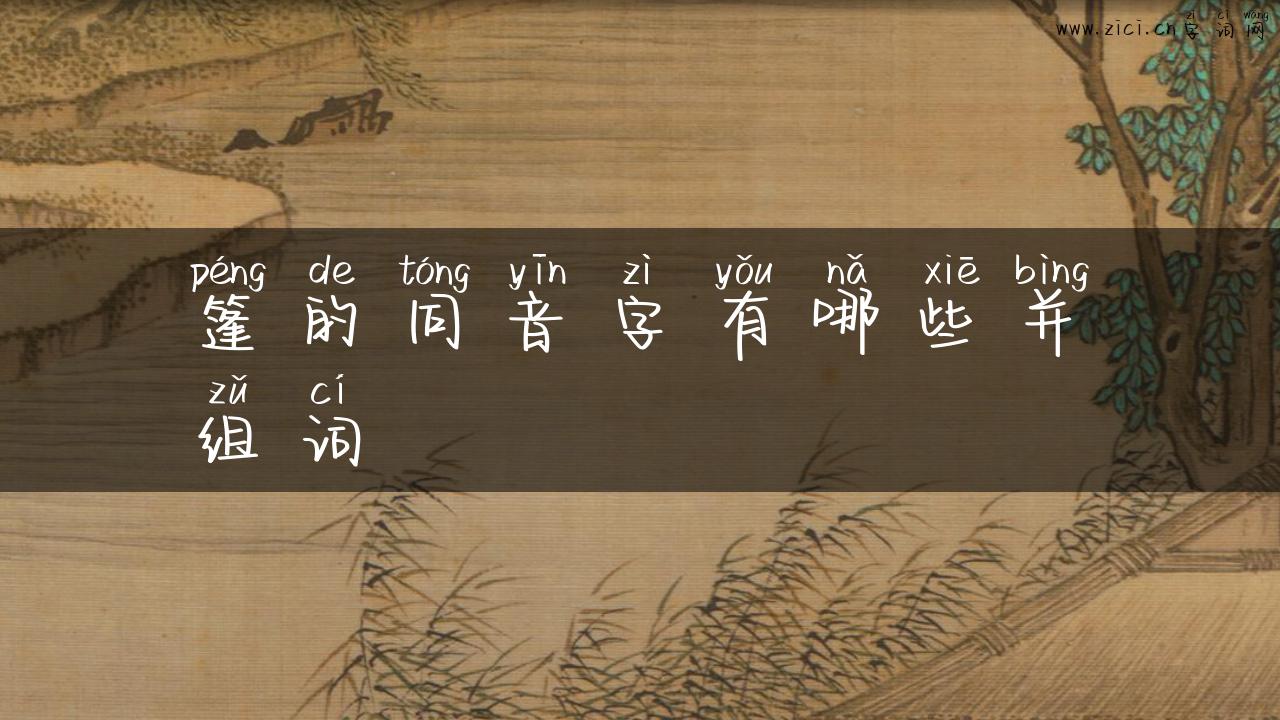 zì cí wǎng
www.zīcī.cn字词网
péng de tóng yīn zì yǒu nǎ xiē bìng
篷的同音字有哪些并
zǔ cí
组词